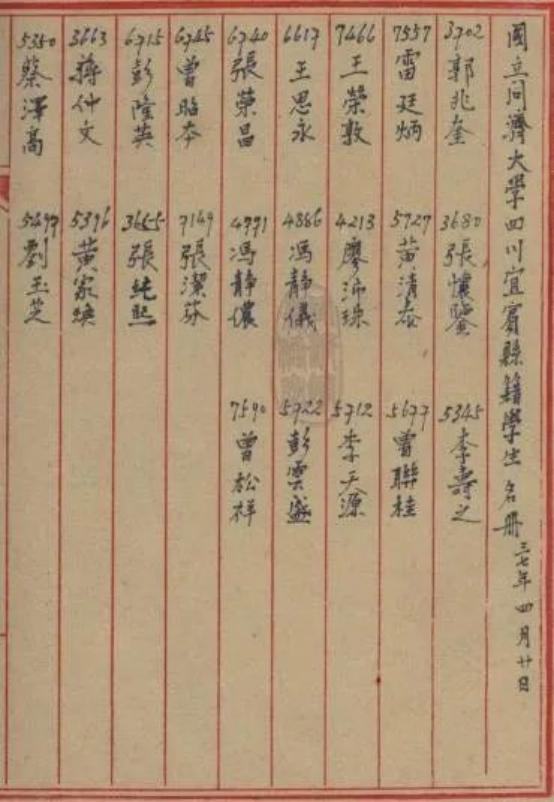 國立同濟大學四川宜賓縣籍學生名冊 三七年四月廿日
3702 郭兆奎 3680 張懷鑒 5345 李壽之
7557 雷廷炳 5727 黃清泰 5677 曾聯桂
7466 王榮敦 4213 廖沛珠 5712 李天源
6617 王思永 4886 馮靜儀 5722 彭雲盛
6740 張榮昌 4771 馮靜儂 7590 曾松祥
6745 曾昭本 7149 張潔芬
6715 彭隆英 3655 張純熙
3663 蔣仲文 5396 黃家煥
5350 蔡澤高 5497 劉玉芝